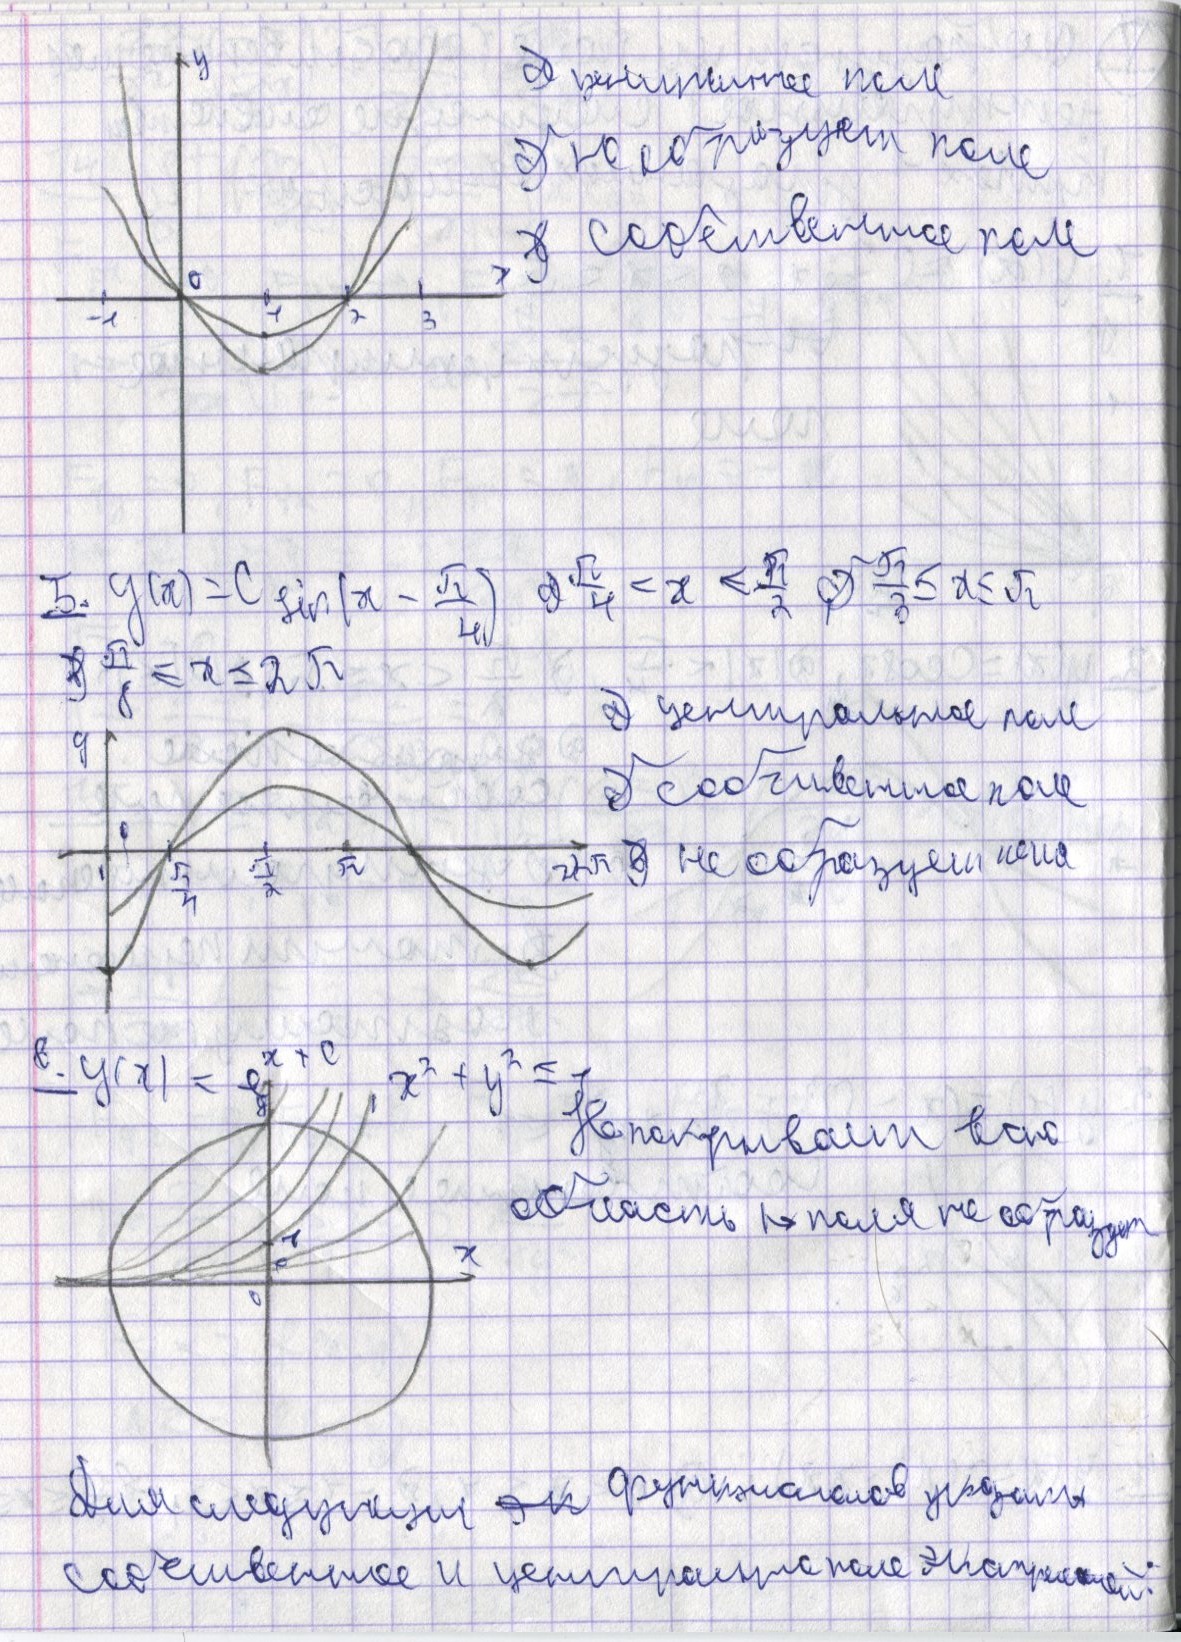 y
а) центральное поле
б) не образует поле
в) собственное поле
0 x
-1 1 2 3
5. y(x) = C sin(x - π/4) а) π/4 < x < π/2 б) π/3 ≤ x ≤ π
в) π/8 ≤ x ≤ 2π
y
а) центральное поле
б) собственное поле
0
π/4 π/2 π 2π в) не образует поля
6. y(x) = e^{x+C} x² + y² ≤ 1
Не покрывает всю
область => поля не образует
1 x
0
Для следующих функционалов указать
собственное и центральное поле экстремалей: